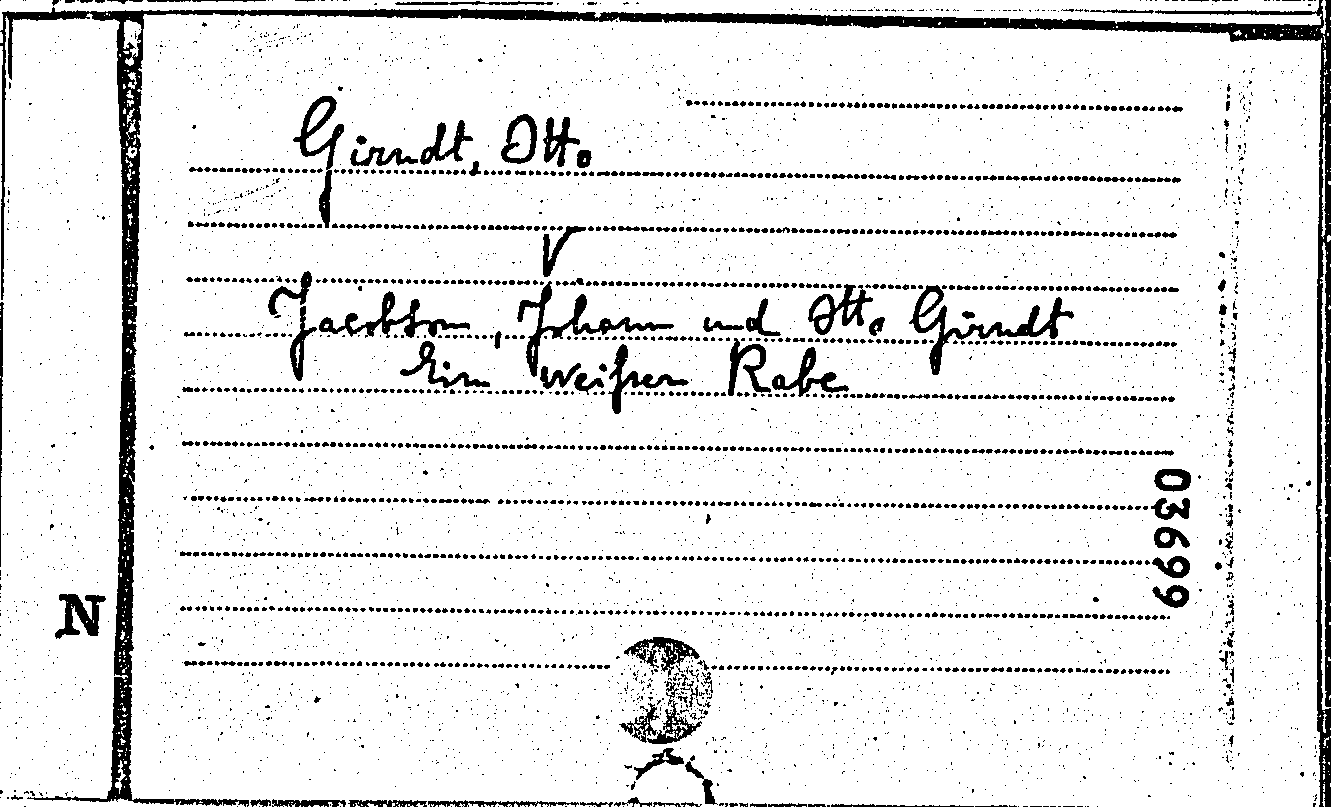 Girndt, Otto
√
Jacobson, Johann und Otto Girndt
Ein weißer Rabe
03699
N